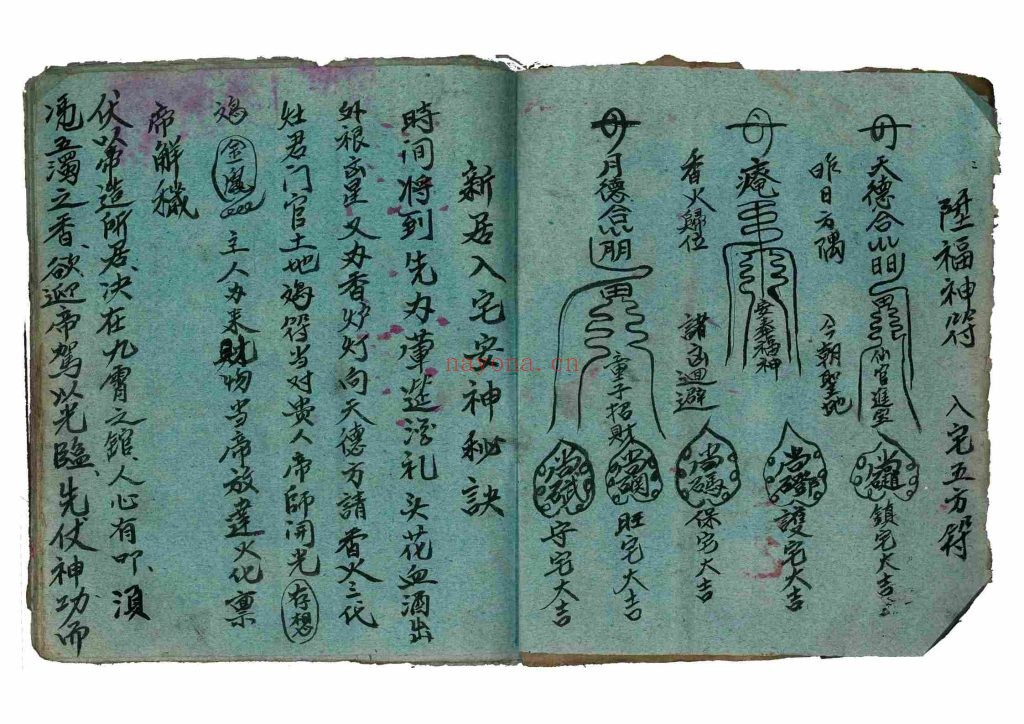 陞福神符 入宅五方符
天德合
仙官進宝
鎮宅大吉
昨日方隅 今朝聖地
護宅大吉
安奉福神
香火歸位 諸凶迴避
保宅大吉
月德合
童子招財
旺宅大吉
守宅大吉
新居入宅安神秘訣
時间将到先办葷筵 礼头花血酒出
外根 星又办香炉灯向天德方請香火三代
灶君门官土地 符当对贵人帝師開光 存想
金鳳 主人办来財物当帝放 火化禀
帝解穢
伏以帝造所居决在九霄之舘人心有叩、須
凴五濁之香、欲迎帝驾以光臨、先仗神功而
nayona.cn